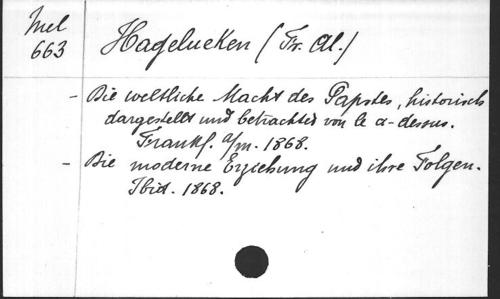 Mel
663
Hagelueken (Fr. Al.)
- Die weltliche Macht des Papstes, historisch
dargestellt und betrachtet von le a-dessus.
Frankf. a/m. 1868.
- Die moderne Erziehung und ihre Folgen.
Ibid. 1868.